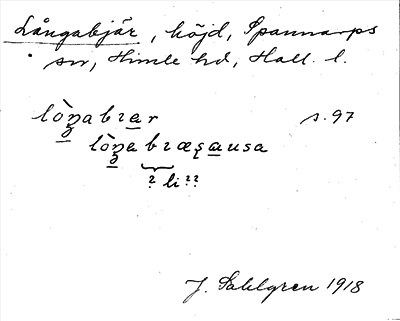 Långabjär, höjd, Spannarps
sn, Himle hd, Hall. l.
lòŋabrar s. 97
lòŋabræsausa
? li ??
J. Sahlgren 1918